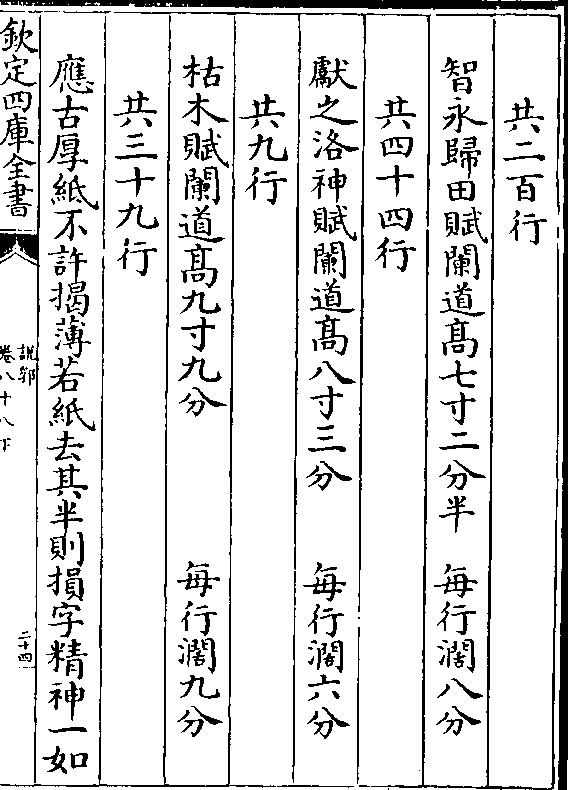 共二百行
智永歸田賦闌道髙七寸二分半　每行濶八分
共四十四行
獻之洛神賦闌道髙八寸三分　每行濶六分
共九行
枯木賦闌道髙九寸九分　每行濶九分
共三十九行
應古厚紙不許揭薄若紙去其半則損字精神一如
欽定四庫全書
說郛
卷八十八下
二十四